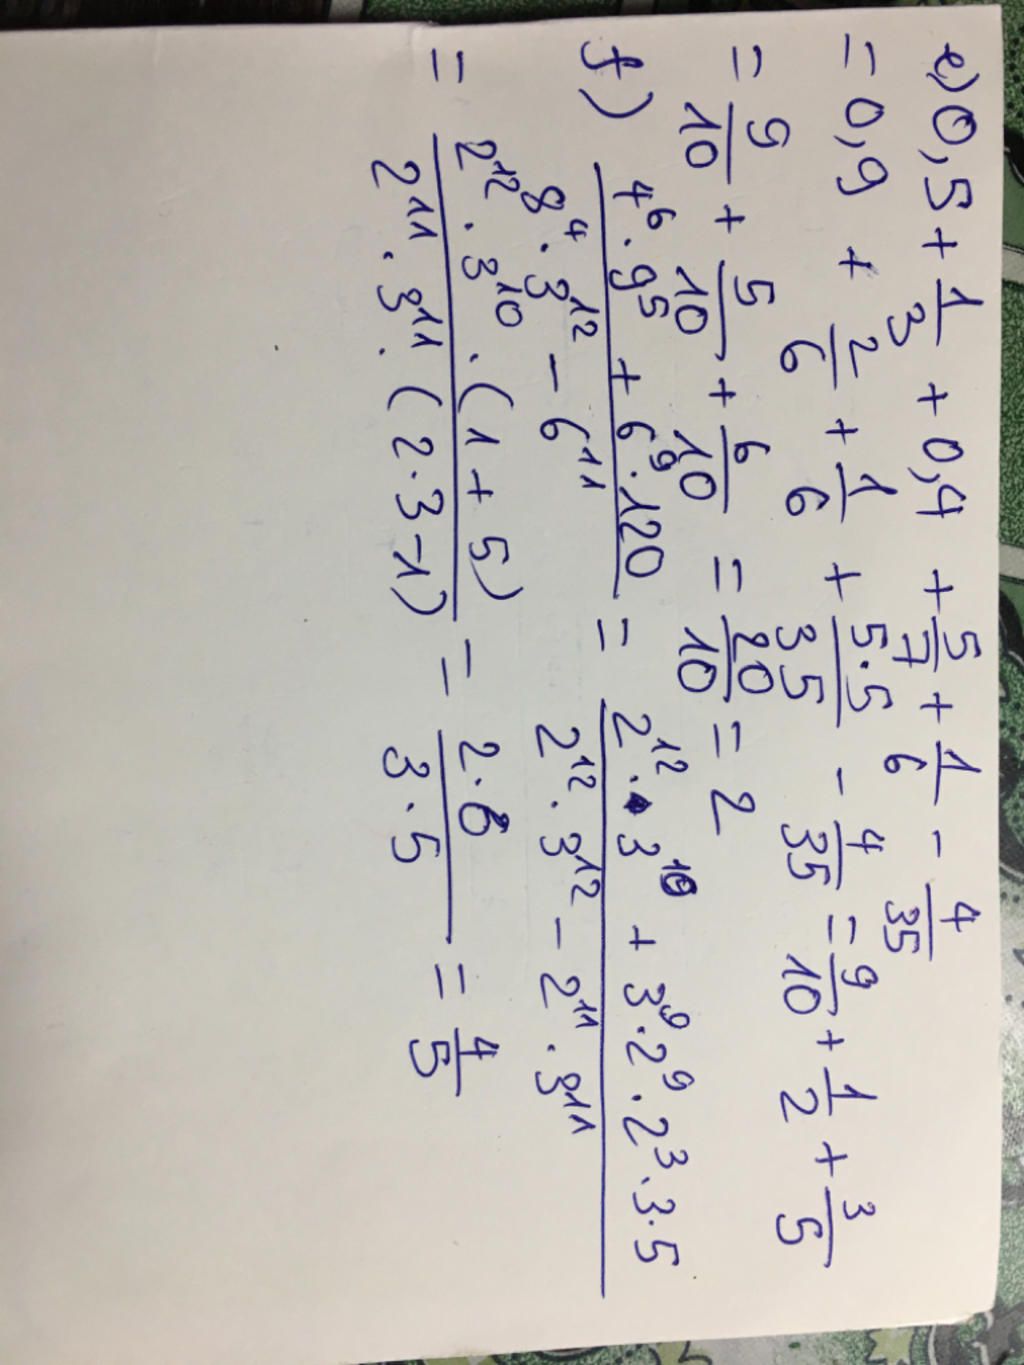 e) 0,5 + 1/3 + 0,4 + 5/7 + 1/6 - 4/35
= 0,9 + 2/6 + 1/6 + 5·5/35 - 4/35 = 9/10 + 1/2 + 3/5
= 9/10 + 5/10 + 6/10 = 20/10 = 2
f) (4^6 · 9^5 + 6^9 · 120)/(8^4 · 3^12 - 6^11) = (2^12 · 3^10 + 3^9 · 2^9 · 2^3 · 3 · 5)/(2^12 · 3^12 - 2^11 · 3^11)
= (2^12 · 3^10 · (1 + 5))/(2^11 · 3^11 · (2 · 3 - 1)) = (2 · 6)/(3 · 5) = 4/5